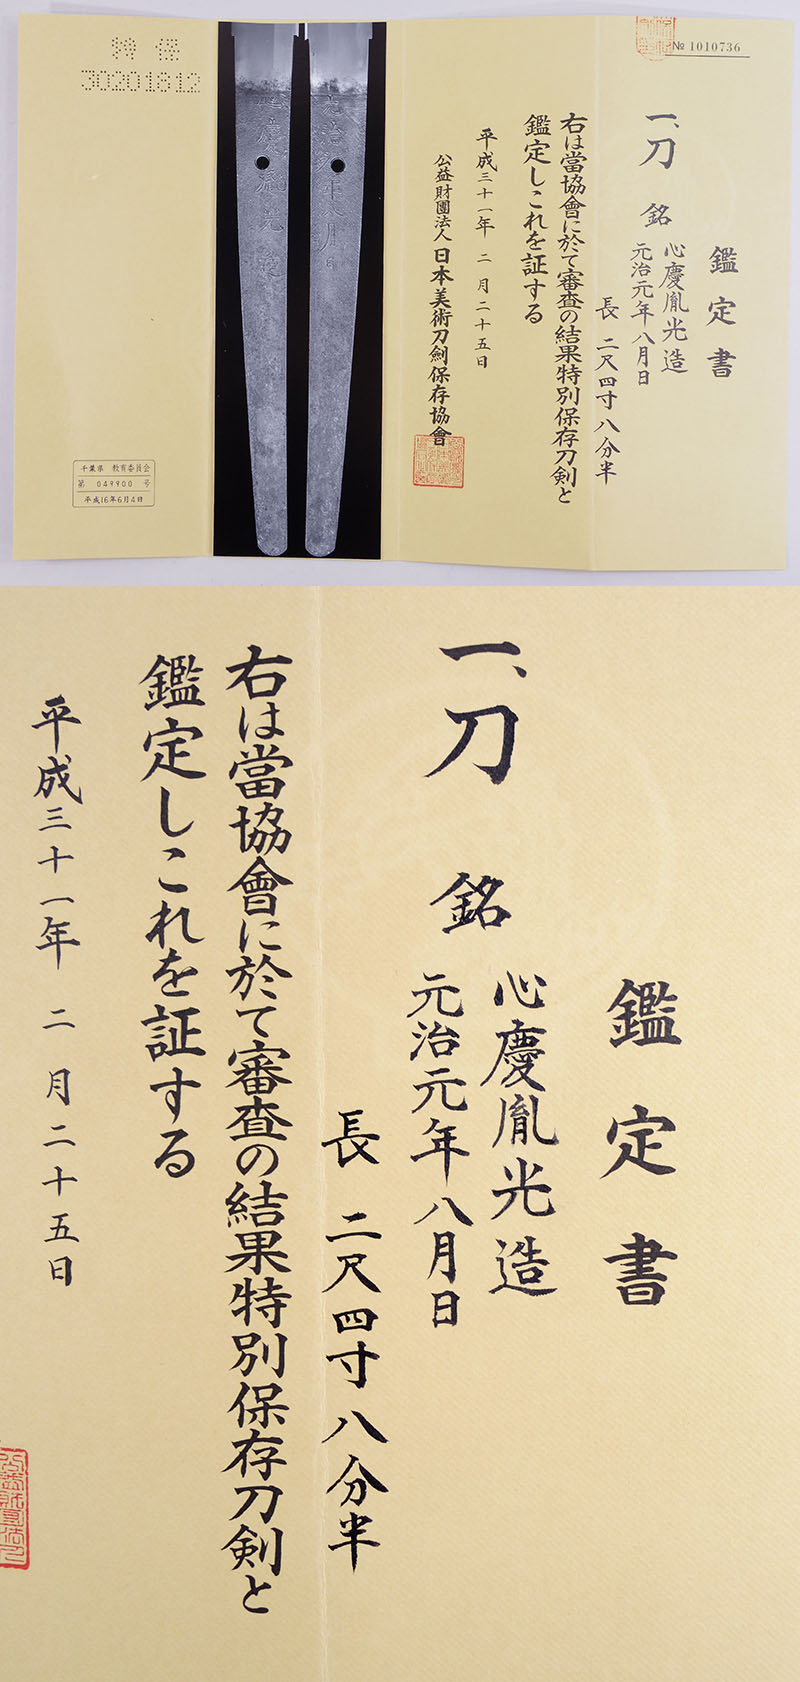 № 1010736
鑑定書
一、刀 銘 心慶胤光造
元治元年八月日
長 二尺四寸八分半
右は當協會に於て審査の結果特別保存刀剣と
鑑定しこれを証する
平成三十一年 二月二十五日
公益財團法人日本美術刀劍保存協會
特 保
30201612
千葉県 教育委員会
第 049900 号
平成16年6月4日
鑑定書
一、刀 銘 心慶胤光造
元治元年八月日
長 二尺四寸八分半
右は當協會に於て審査の結果特別保存刀剣と
鑑定しこれを証する
平成三十一年 二月二十五日